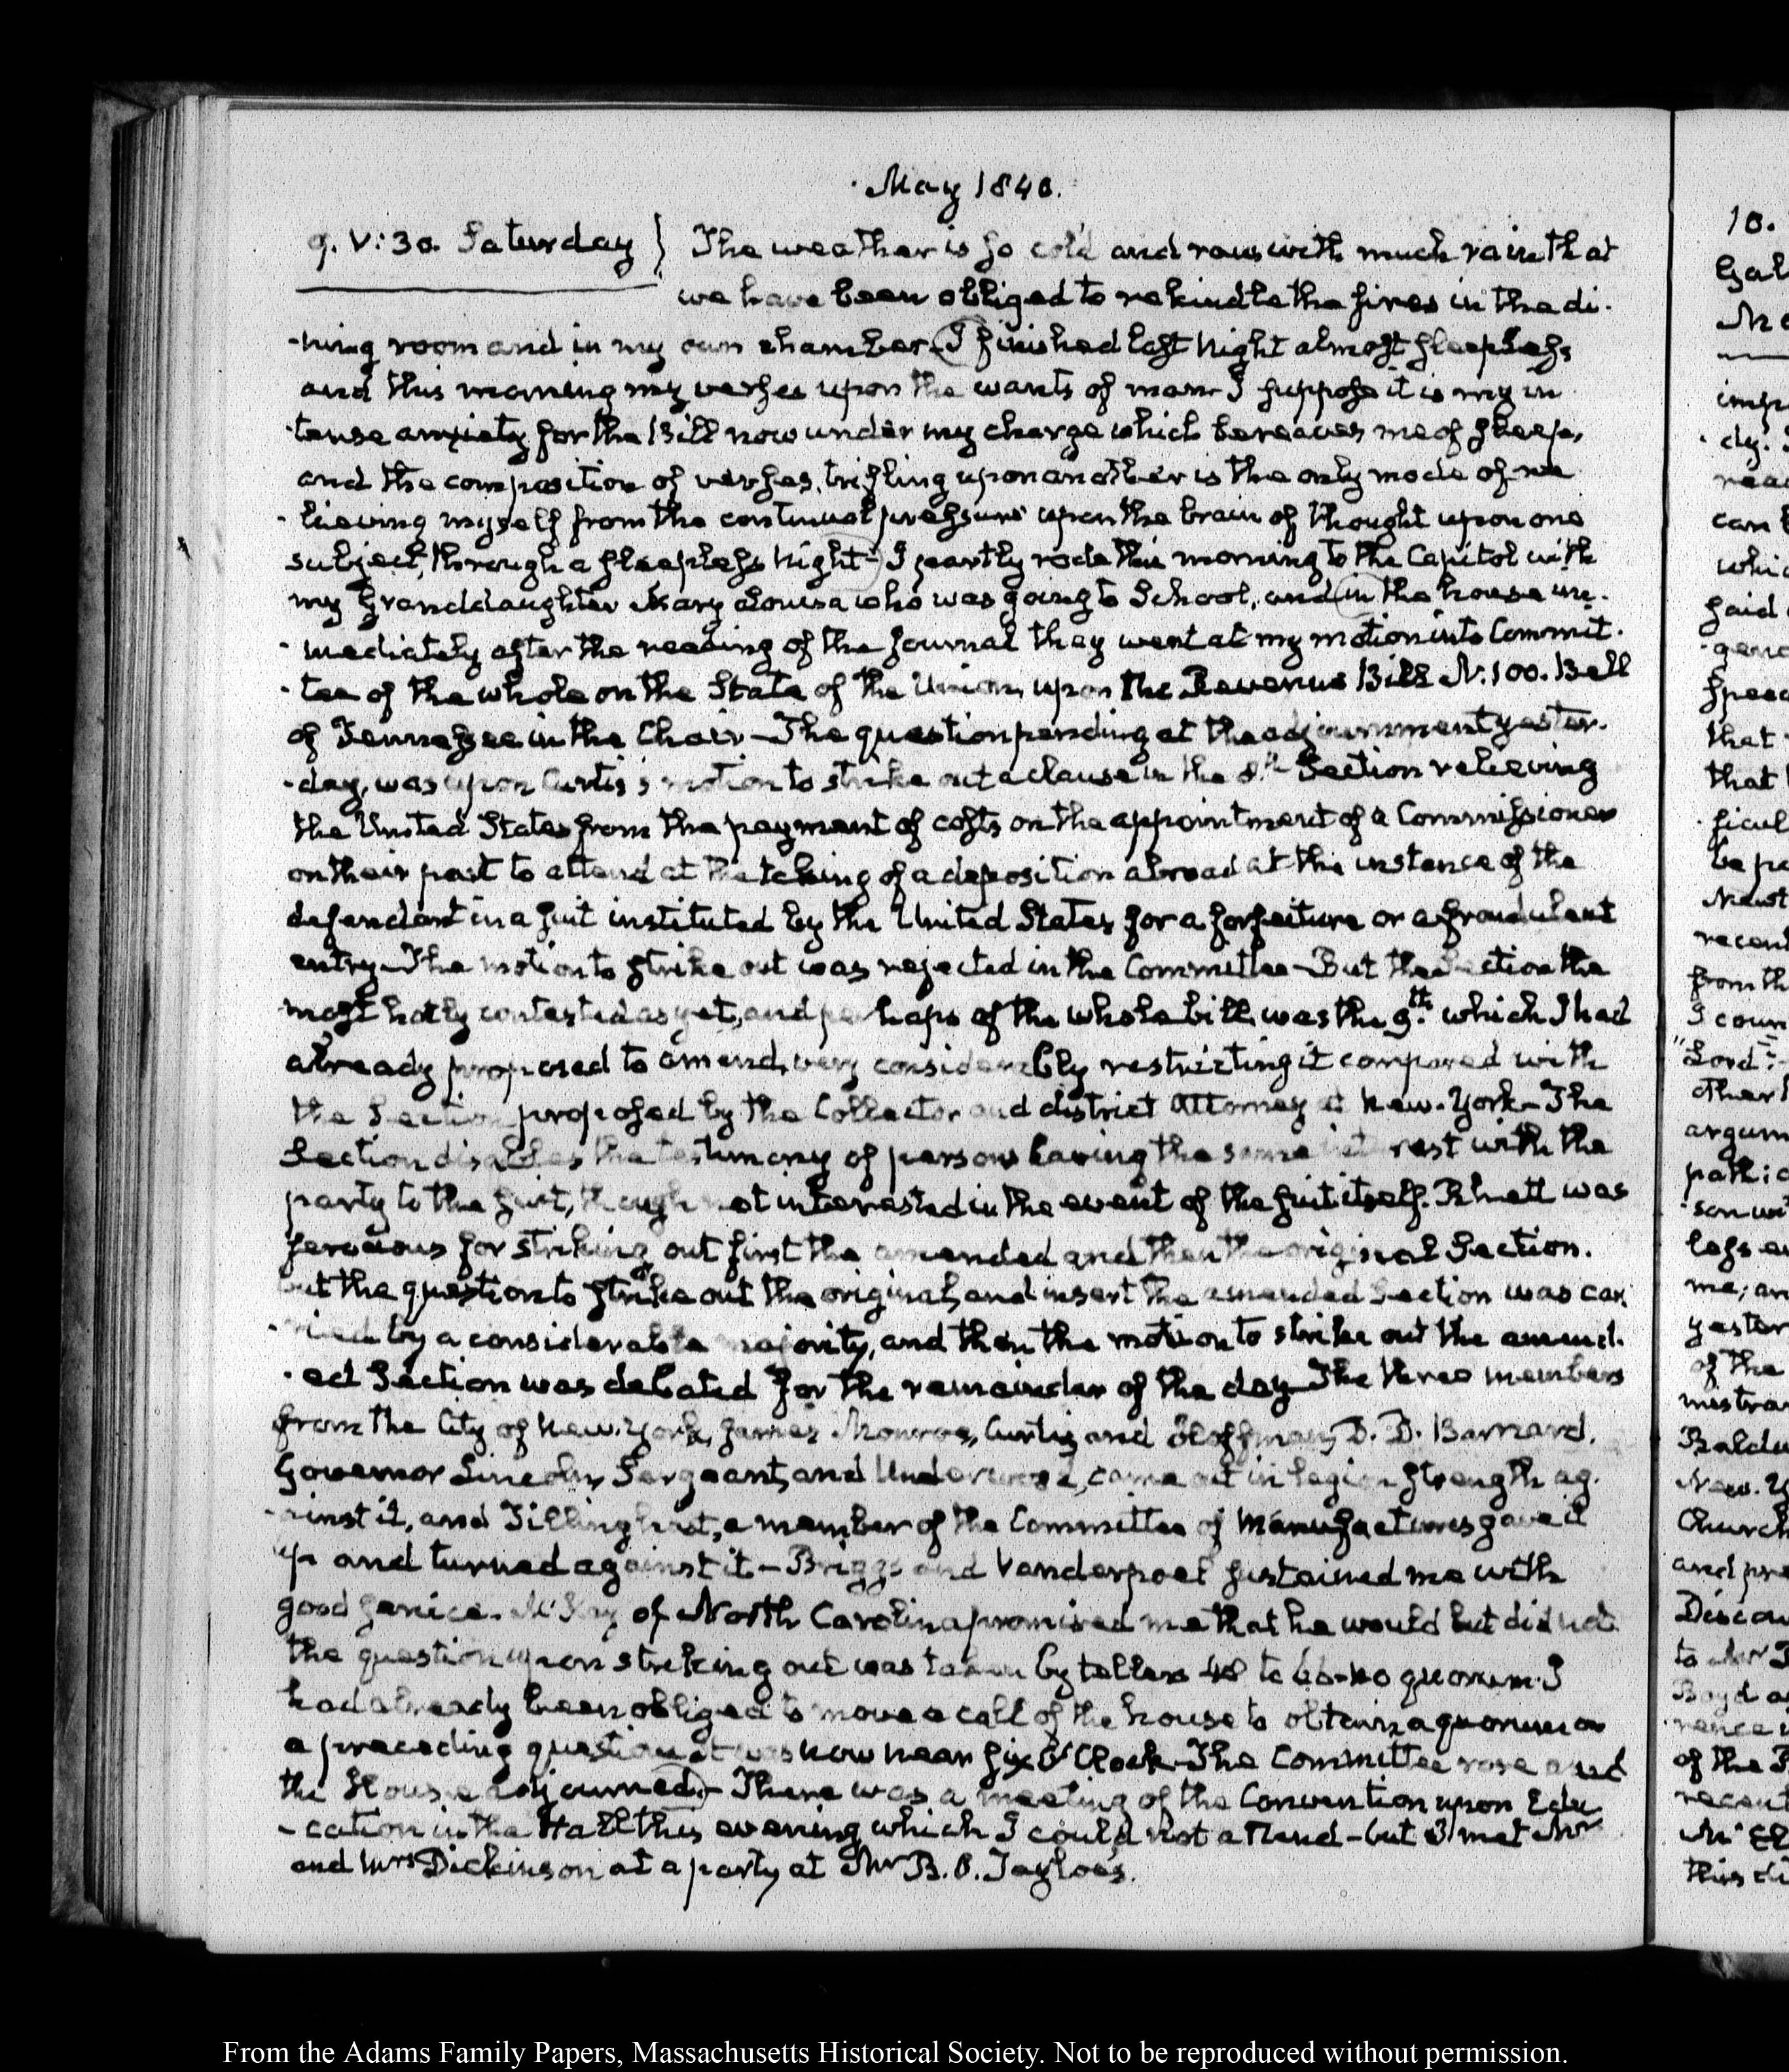 May 1840.
9. V:30. Saturday } The weather is so cold and raw with much rain that
we have been obliged to rekindle the fires in the di-
-ning room and in my own chamber. I finished last Night almost sleepless
and this morning my verses upon the wants of man. I suppose it is my in
-tense anxiety for the Bill now under my charge which bereaves me of sleep,
and the composition of verses, trifling upon another is the only mode of re
-lieving myself from the continual pressure upon the brain of thought upon one
subject, through a sleepless Night— I partly rode this morning to the Capitol with
my Granddaughter Mary Louisa who was going to School, and in the house im-
-mediately after the reading of the Journal they went at my motion into Commit-
-tee of the whole on the State of the Union, upon the Revenue Bill N. 100. Bell
of Tennessee in the Chair—The question pending at the adjournment yester-
-day, was upon Curtis's motion to strike out a clause in the 8th Section relieving
the United States from the payment of costs on the appointment of a Commissioner
on their part to attend at the taking of a deposition abroad at the instance of the
defendant in a suit instituted by the United States for a forfeiture or a fraudulent
entry—The motion to strike out was rejected in the Committee—But the Section the
most hotly contested as yet, and perhaps of the whole bill was the 9th which I had
already proposed to amend, very considerably restricting it compared with
the Section proposed by the Collector and district Attorney at New-York—The
Section disables the testimony of persons having the same interest with the
party to the suit, though not interested in the event of the suit itself. Rhett was
ferocious for striking out first the amended and then the original Section.
but the question to strike out the original, and insert the amended Section was car
-ried by a considerable majority, and then the motion to strike out the amend-
-ed Section was debated for the remainder of the day—The three members
from the City of New-York, James Monroe, Curtis and Hoffman, D. D. Barnard,
Governor Lincoln, Sergeant, and Underwood, came out in legion strength ag-
-ainst it, and Tillinghast, a member of the Committee of Manufactures gave it
up and turned against it—Briggs and Vanderpoel sustained me with
good service. McKay of North Carolina promised me that he would but did not.
the question upon striking out was taken by tellers 48 to 66-no quorum. I
had already been obliged to move a call of the house to obtain a quorum on
a preceding question it was now near six O'Clock—The Committee rose and
the House adjourned.— There was a meeting of the Convention upon Edu
-cation in the Hall this evening which I could not attend—but I met Mr
and Mrs Dickinson at a party at Mr B. O. Tayloe's.
10.
From the Adams Family Papers, Massachusetts Historical Society. Not to be reproduced without permission.